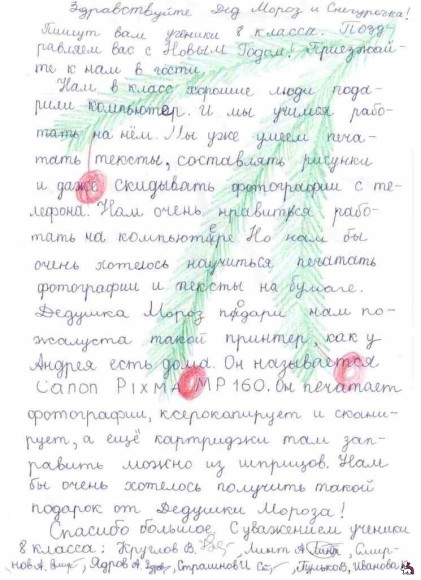 Здравствуйте Дед Мороз и Снегурочка!
Пишут вам ученики 8 класса. Позд-
равляем вас с Новым Годом! Приезжай-
те к нам в гости.
Нам в класс хорошие люди пода-
рили компьютер. И мы учимся рабо-
тать на нём. Мы уже умеем печа-
тать тексты, составлять рисунки
и даже скидывать фотографии с те-
лефона. Нам очень нравиться рабо-
тать на компьютере Но нам бы
очень хотелось научиться печатать
фотографии и тексты на бумаге.
Дедушка Мороз подари нам по-
жалуста такой принтер, как у
Андрея есть дома. Он называется
Canon PIXMA MP 160. Он печатает
фотографии, ксерокапирует и скани-
рует, а ещё картриджи там зап-
равить можно из шприцов. Нам
бы очень хотелось получить такой
подарок от Дедушки Мороза!
Спасибо большое. С уважением ученики
8 класса: Круглов В. Линт А Смир-
нов А. Ядров А. Страшнов И Пульков, Иванова